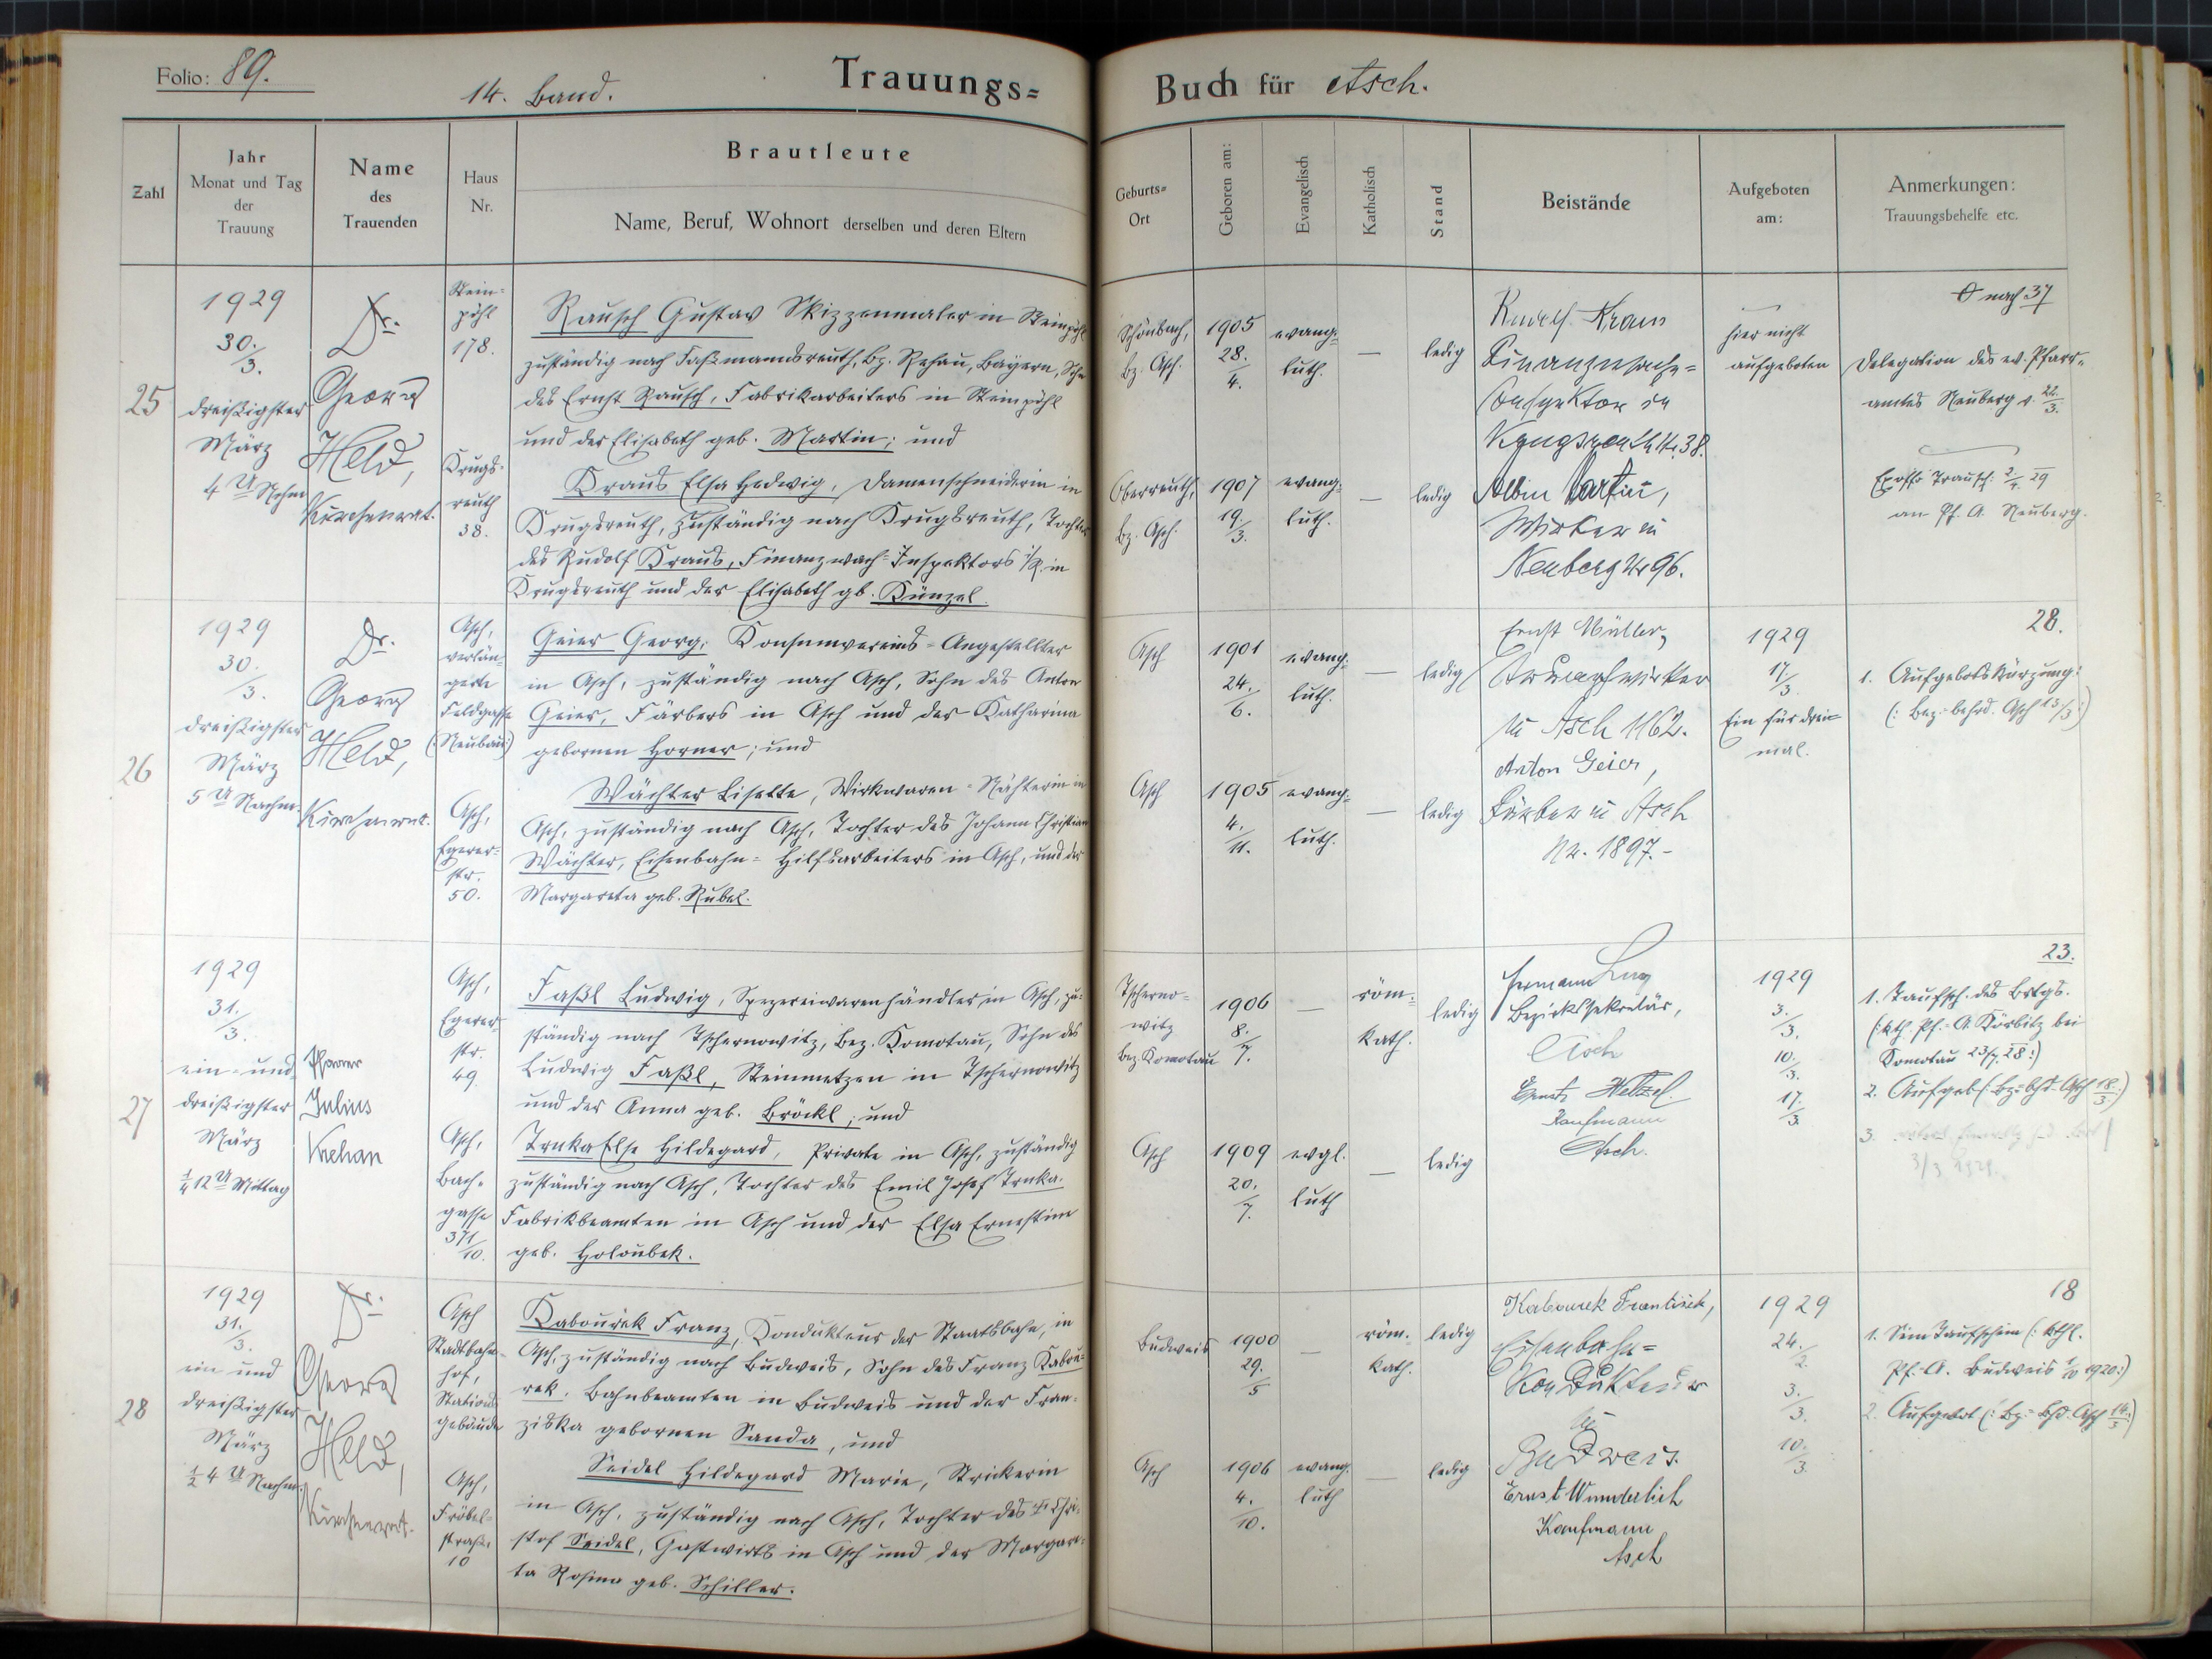 Folio: 89.
14. Band.
Trauungs=
Buch für Asch.
Zahl
Jahr
Monat und Tag
der
Trauung
Name
des
Trauenden
Haus
Nr.
Brautleute
Name, Beruf, Wohnort derselben und deren Eltern
Geburts=
Ort
Geboren am:
Evangelisch
Katholisch
Stand
Beistände
Aufgeboten
am:
Anmerkungen:
Trauungsbehelfe etc.
25
1929
30.
3.
dreißigster
März
4 U Nchm
Dr.
Georg
Held,
Kirchenrat.
Stein=
pöhl
178.
Krugs-
reuth
38.
Rausch Gustav Skizzenmaler in Steinpöhl
zuständig nach Faßmannsreuth, Bz. Rehau, Bayern, Sohn
des Ernst Rausch, Fabrikarbeiters in Steinpöhl
und der Elisabeth geb. Martin; und
Kraus Elsa Hedwig, Damenschneiderin in
Krugsreuth, zuständig nach Krugsreuth, Tochter
des Rudolf Kraus, Finanzwach=Inspektors i/R. in
Krugsreuth und der Elisabeth gb. Künzel.
Schönbach,
bz. Asch.
1905
28.
4.
evang=
luth.
—
ledig
Oberreuth,
bz. Asch.
1907
19.
3.
evang=
luth.
—
ledig
Rudolf Kraus
Finanzwach=
Inspektor in
Krugsreuth Nr. 38.
Albin Martin,
Wirker in
Neuberg Nr 96.
hier nicht
aufgeboten
nach 37
Delegation des ev. Pfarr=
amtes Neuberg v. 22.
3.
Exoffo Trausch. 2./4. 29
an Pf. A. Neuberg.
26
1929
30.
3.
dreißigster
März
5 U Nachm.
Dr.
Georg
Held,
Kirchenrat.
Asch,
verlän=
gerte
Feldgasse
(:Neubau:)
Asch,
Egerer=
str.
50.
Geier Georg, Konsumvereins=Angestellter
in Asch, zuständig nach Asch, Sohn des Anton
Geier, Färbers in Asch und der Katharina
gebornen Horner; und
Wächter Lisette, Wirkwaren=Nähterin in
Asch, zuständig nach Asch, Tochter des Johann Christian
Wächter, Eisenbahn=Hilfsarbeiters in Asch, und der
Margareta geb. Rubel.
Asch
1901
24.
6.
evang=
luth.
—
ledig
Asch
1905
4.
11.
evang=
luth.
—
ledig
Ernst Müller,
in Asch 1162.
Anton Geier,
Färber in Asch
Nr. 1897.-
1929
17.
3.
Ein für drei=
mal.
28.
1. Aufgebotskürzung:
(: Bez.=behrd. Asch 15/3:)
27
1929
31.
3.
ein=und
dreißigster
März
¼ 12 U Mittag
Pfarrer
Julius
Krehan
Asch,
Egerer=
str.
49.
Asch,
Bach=
gasse
371/10.
Faßl Ludwig, Spezereiwarenhändler in Asch, zu=
ständig nach Tschernowitz, Bez. Komotau, Sohn des
Ludwig Faßl, Steinmetzen in Tschernowitz
und der Anna geb. Bröckl; und
Trnka Else Hildegard, Private in Asch, zuständig
zuständig nach Asch, Tochter des Emil Josef Trnka.
Fabrikbeamten in Asch und der Elsa Ernestine
geb. Holoubek.
Tscherno=
witz
bez. Komotau
1906
8.
7.
—
röm.=
kath.
ledig
Asch
1909
20.
7.
evgl.
luth
—
ledig
Hermann
Bezirkssekretär,
Asch
Ernst Wetzel.
Kaufmann
Asch.
1929
3.
3.
10.
3.
17.
3.
23.
1. Taufsch. des Brtgs.
(:kth. Pf.=A. Körbitz bei
Komotau 23/7. 28:)
2. Aufgeb (: bz=bhd. Asch 18./3:)
3.
3/3 1929.
28
1929
31.
3.
ein und
dreißigster
März
½ 4 U Nachm.
Dr.
Georg
Held,
Kirchenrat.
Asch
Stadtbahn=
hof,
Stations
gebäude
Asch,
Fröbel=
straße
10
Kabourek Franz, Kondukteur der Staatsbahn, in
Asch, zuständig nach Budweis, Sohn des Franz Kabou=
rek. Bahnbeamten in Budweis und der Fran=
ziska gebornen Sanda, und
Seidel Hildegard Marie, Strickerin
in Asch, zuständig nach Asch, Tochter des Chri=
stof Seidel, Gastwirts in Asch und der Margare=
ta Rosina geb. Schiller.
Budweis
1900
29.
5
—
röm.
kath.
ledig
Asch
1906
4.
10.
evang.
luth
—
ledig
Kabourek František,
Eisenbahn=
Kondukteur
in
Budweis.
Ernst Wunderlich
Kaufmann
Asch
1929
24.
2.
3.
3.
10.
3.
18
1. Sein Taufschein (: kthl.
Pf.=A. Budweis 1920:)
2. Aufgebot (: bz.=bhd. Asch 14./3:)